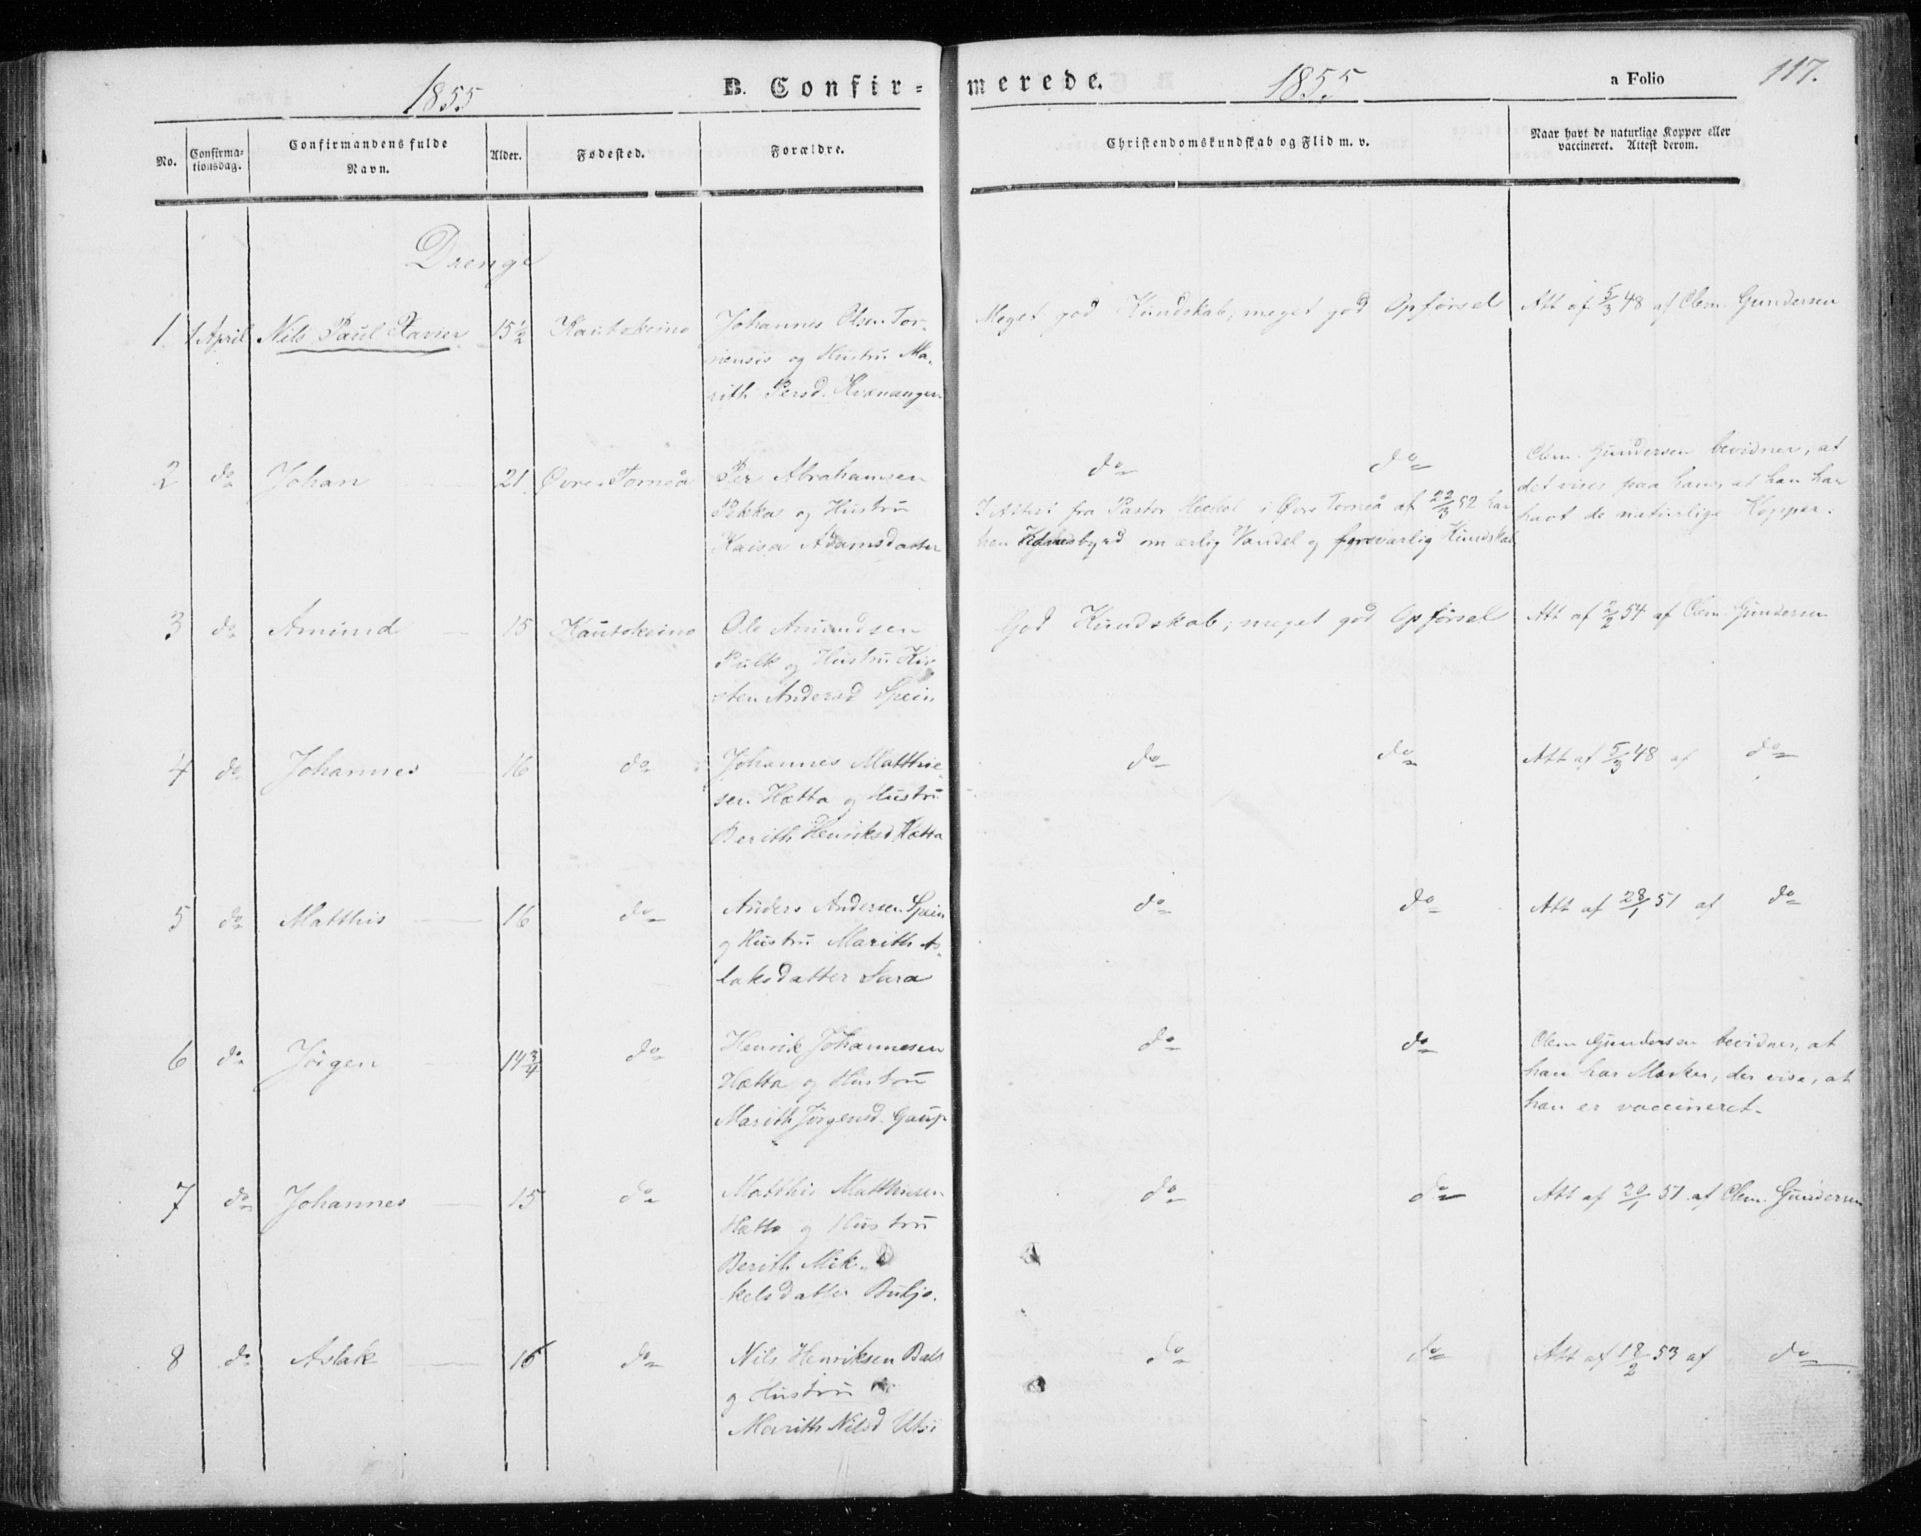 1855 B. Confirmerede. 1855 a Folio 117.
No. Confirmationsdag. Confirmandens fulde Navn. Alder. Fødested. Forældre. Christendomskundskab og Flid m. v. Naar havt de naturlige Kopper eller vaccineret. Attest derom.
Drenge
1 1 April Nils Paul Xavier 15½ Kautokeino Johannes Olsen Tor- Meget god Kundskab, meget god Opførsel Att af 5/3 48 af Clem. Gundersen
nensis og Hustru Ma-
rith Persd. Kvænangen
2 do Johan 21 Øvre Torneå Per Abrahamsen do do Clem. Gundersen bevidner, at
Pekka og Hustru I Attest fra Pastor i Øvre Torneå af 22/3 52 har det vises paa ham, at han har
Kaisa Adamsdatter han Vidnesbyrd om ærlig Vandel og forsvarlig Kundskab havt de naturlige Kopper.
3 do Amund 15 Kautokeino Ole Amundsen God Kundskab; meget god Opførsel Att af 2/2 54 af Clem. Gundersen
Pulk og Hustru Kir-
sten Andersd Spein
4 do Johannes 16 do Johannes Matthie- do do Att af 5/3 48 af do
sen Hætta og Hustru
Berith Henriksd Hætta
5 do Matthis 16 do Anders Andersen Spein do do Att af 28/1 51 af do
og Hustru Marith As-
laksdatter Sara
6 do Jörgen 14¾ do Henrik Johannesen do do Clem Gundersen bevidner, at
Hætta og Hustru han har Mærker, der vise, at
Marith Jörgensd. Gaup han er vaccineret.
7 do Johannes 15 do Matthis Matthiesen do do Att af 20/1 51 af Clem. Gundersen
Hætta og Hustru
Berith Mik-
kelsdatter Buljo.
8 do Aslak 16 do Nils Henriksen Bals do do Att af 18/2 53 af do
og Hustru
Marith Nilsd Utsi